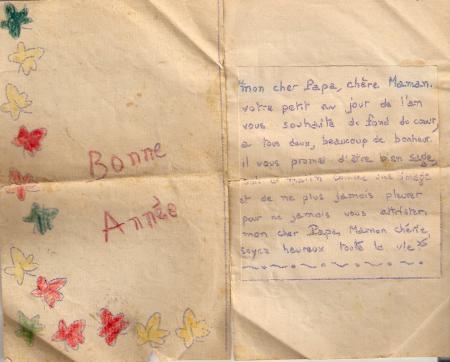 Bonne
Année
mon cher Papa, chère Maman.
votre petit au jour de l'an
vous souhaite du fond du cœur,
a tous deux, beaucoup de bonheur.
il vous promet d'être bien sage,
soir et matin comme une image
et de ne plus jamais pleurer
pour ne jamais vous attrister.
mon cher Papa, Maman chérie
soyez heureux toute la vie